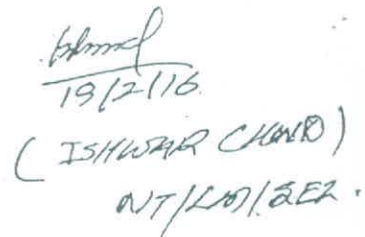 19/2/16.
( ISHWAR CHAND )
NT/LAO/SEZ.